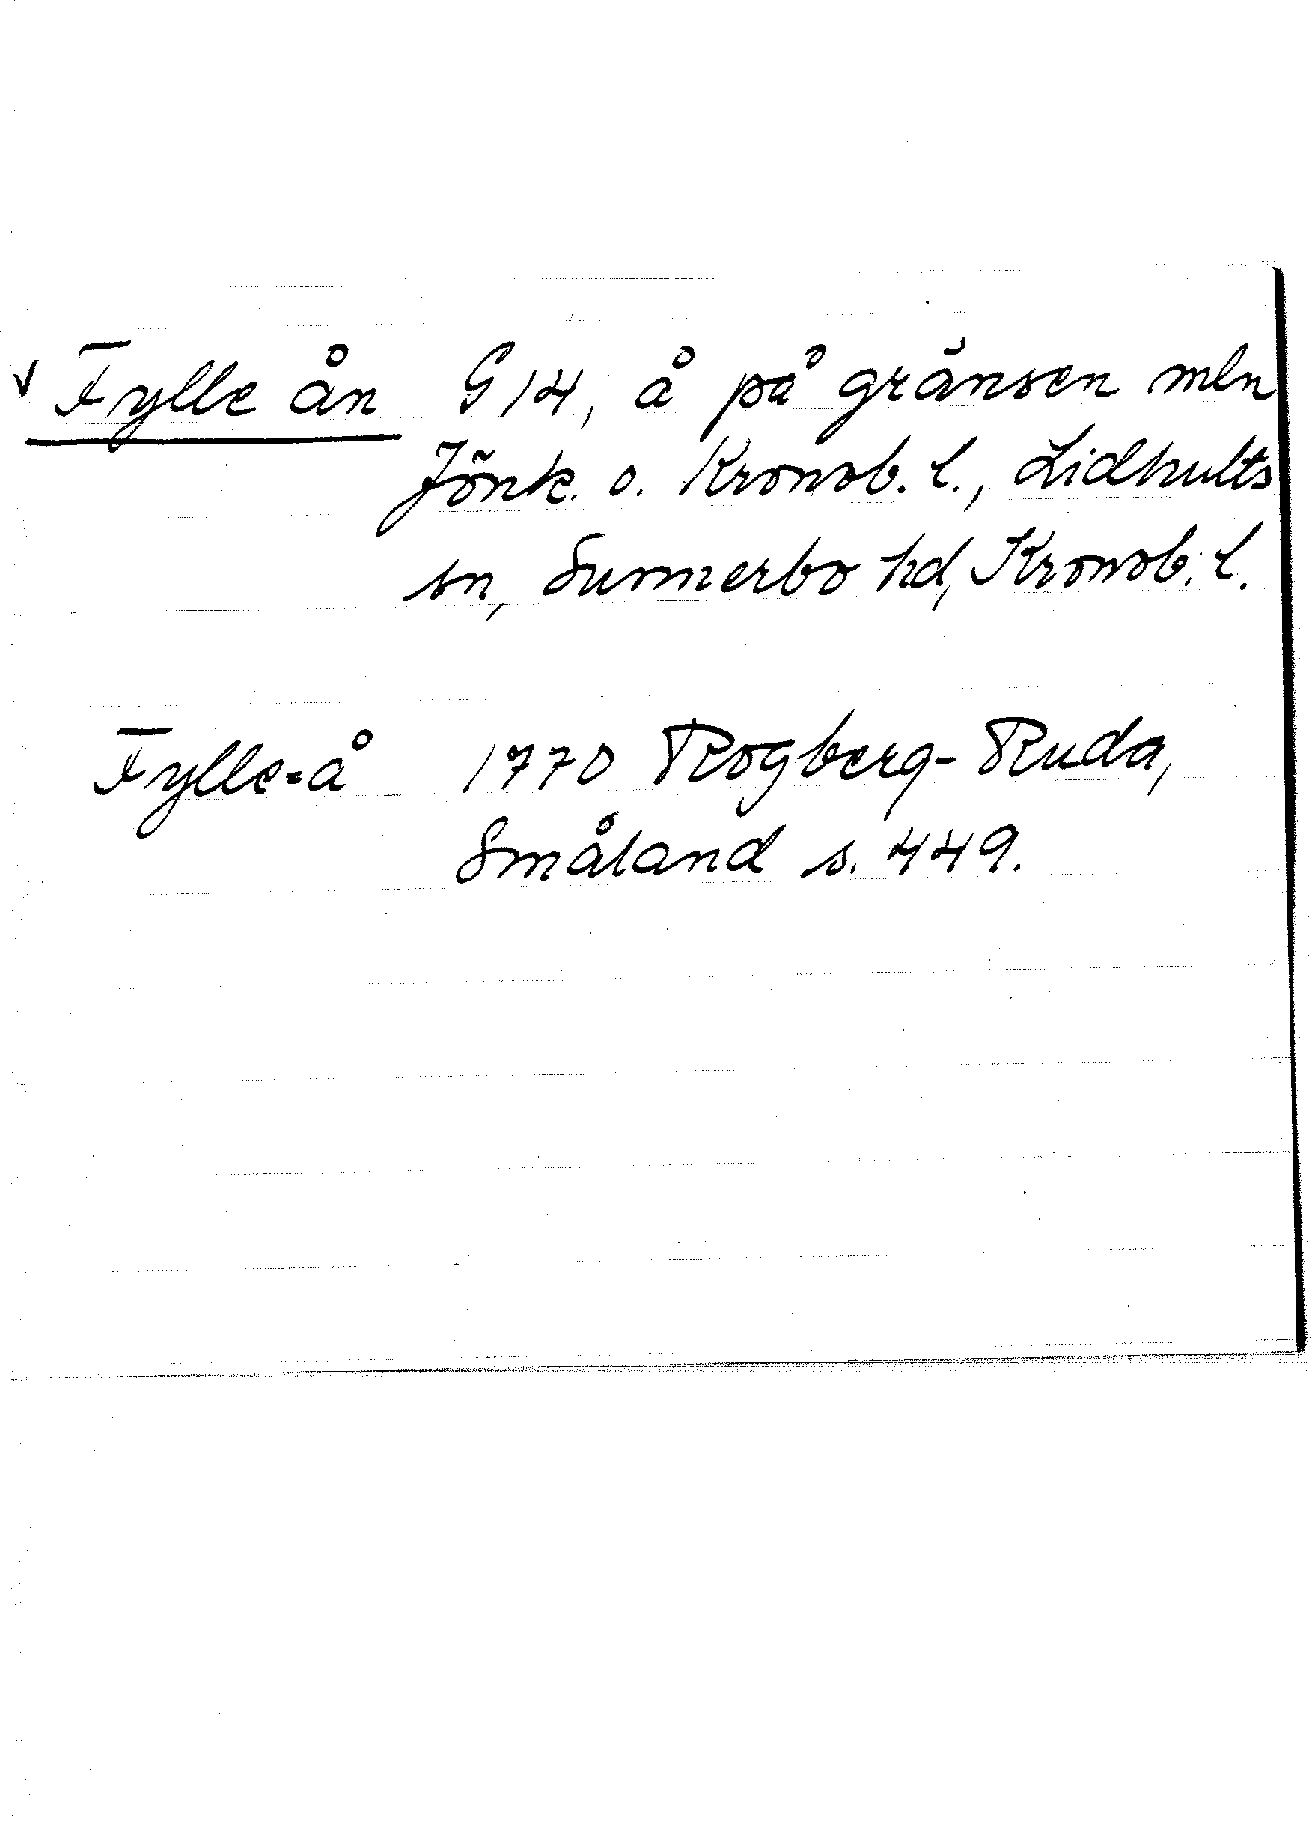 v Fylle ån G 14, å på gränsen mln
Jönk. o. Kronob. l., Lidhults
sn, Sunnerbo hd, Kronob. l.
Fylle-å 1770 Rogberg-Ruda,
Småland s. 449.